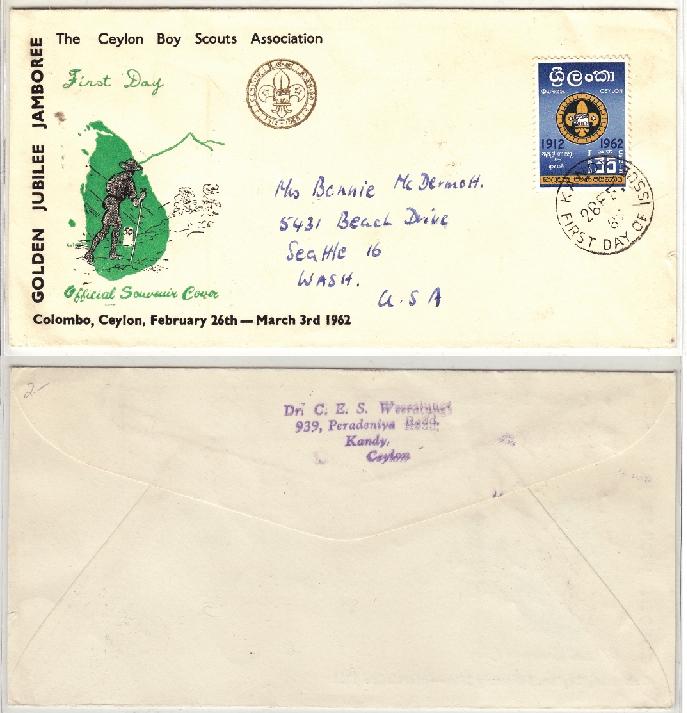 GOLDEN JUBILEE JAMBOREE
The Ceylon Boy Scouts Association
First Day
ශ්‍රී ලංකා
CEYLON
1912 1962
35
Mrs Bonnie McDermott.
5431 Beach Drive
Seattle 16
WASH.
U.S A
FIRST DAY OF
Official Souvenir Cover
Colombo, Ceylon, February 26th — March 3rd 1962
2-
Dr. C. E. S. Weeratunge
939, Peradeniya Road,
Kandy,
Ceylon